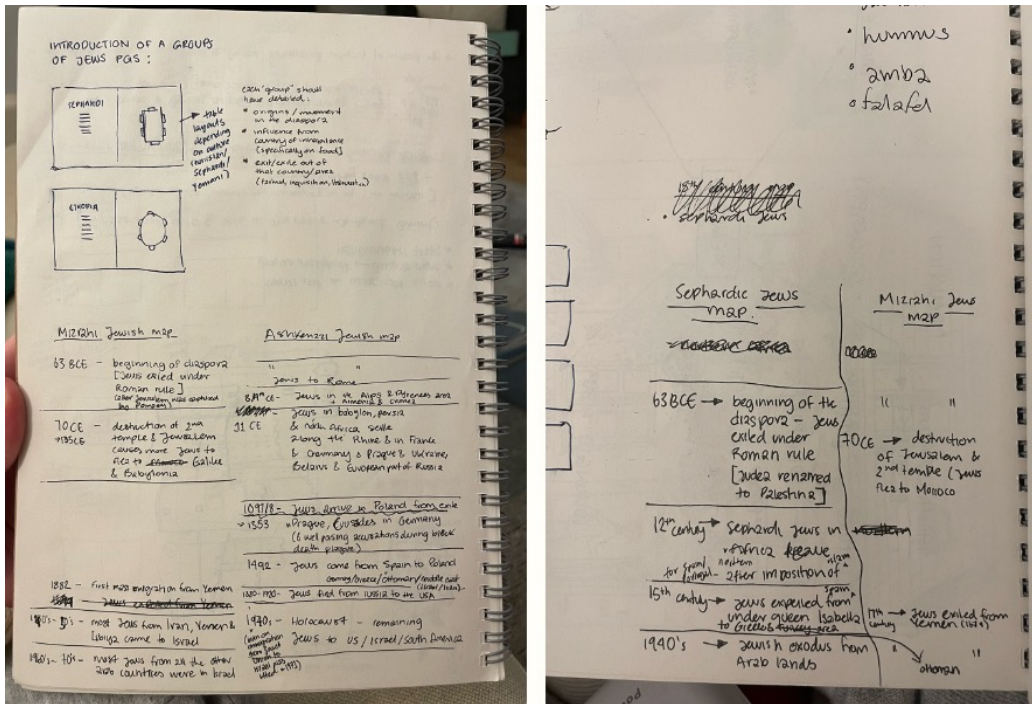 INTRODUCTION OF A GROUPS
OF JEWS PGS :
SEPHARDI
table
layouts
depending
on culture
Sephardi/
Yemani)
ETHIOPIA
each "group" should
have detailed:
• origins/movement
in the diaspora
• influence from
country of inhabitance
[specifically on food]
• exit/exile out of
that country/area
(farmed, inquisition,
Mizrahi Jewish map
63 BCE - beginning of diaspora
[Jews exiled under
Roman rule]
(after Jerusalem was captured
by Pompey)
70CE - destruction of 2nd
→135CE temple & Jerusalem
causes more Jews to
flee to Galilee
& Babylonia
1882 - first mass emigration from Yemen
Jews from Yemen
most Jews from Iran, Yemen &
Libya came to Israel
1960's - 70's - most Jews from all the other
countries were in Israel
Ashkenazi Jewish map
" "
Jews to Rome
CE - Jews in the Alps & Pyrenees area
+ Armenia & Crimea
Jews in babylon, persia
CE & north Africa settle
along the Rhine & in France
& Germany & Prague & Ukraine,
Belarus & European part of Russia
- Jews arrive in Poland from
→ 1353 Prague, Crusades in Germany
(& well posing accusations during black
death plague)
1492 - Jews come from Spain to Poland
Greece/Ottoman/middle east
- Jews fled from russia to the USA
- Holocaust - remaining
Jews to US / Israel / South America
• hummus
• amba
• falafel
• sephardi Jews
Sephardic Jews
map
63BCE → beginning of the
diaspora - Jews
exiled under
Roman rule
[Judea renamed
to Palestina]
12th century → Sephardi Jews in
northern
after imposition of
15th century → Jews expelled from Spain
under queen Isabella
to Greece
1940's → Jewish exodus from
Arab lands
Mizrahi Jews
map
" "
70CE → destruction
of Jerusalem &
2nd temple (Jews
flee to Morocco
17th century → Jews exiled from
Yemen
"
ottoman